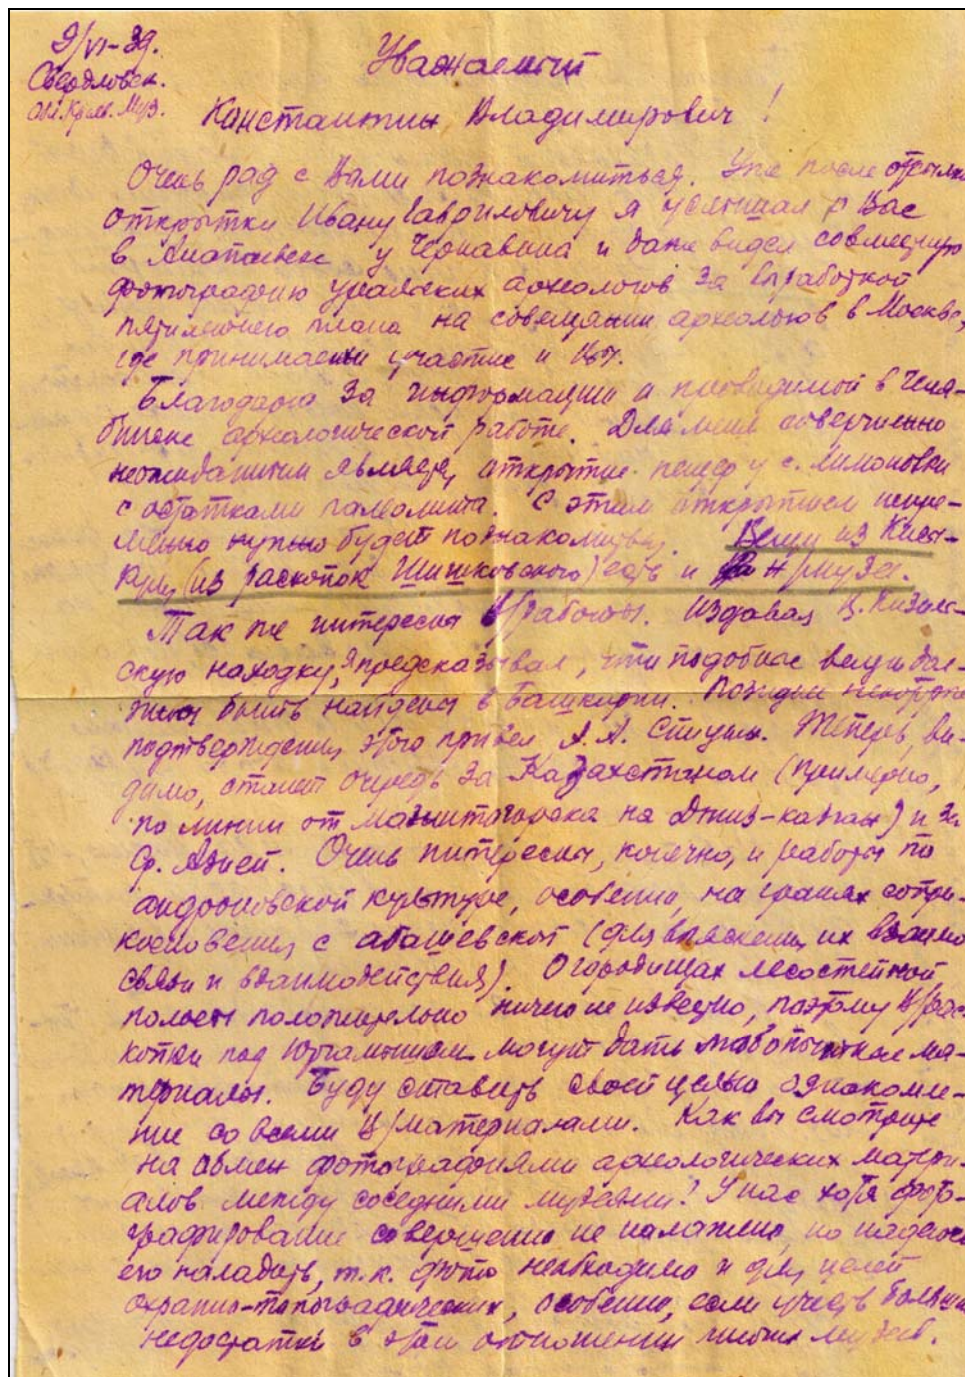 9/VI-39.
Свердловск.
Обл. Краев. Муз.
Уважаемый
Константин Владимирович!
Очень рад с Вами познакомиться. Уже после отсылки
открытки Ивану Гавриловичу я услышал о Вас
в Алапаевске у Чернавина и даже видел совместную
фотографию уральских археологов за выработкой
пятилетнего плана на совещании археологов в Москве,
где принимали участие и Вы.
Благодарю за информацию о проводимой в Челя-
бинске археологической работе. Для меня совершенно
неожиданным является открытие пещер у с.
с остатками палеолита. С этим открытием непре-
менно нужно будет познакомиться. Вещи из Кысы-
куля (из раскопок Шишковского) есть и в н/музее.
Так же интересны В/работы. Издавая В. Кизиль-
скую находку, я предсказывал, что подобные вещи дол-
жны быть найдены в Башкирии. Позднее
подтверждения этого привел А. А. Теперь, ви-
димо, станет очередь за Казахстаном (примерно,
по линии от Магнитогорска на Джиз-казган) и за
Ср. Азией. Очень интересны, конечно, и работы по
андроновской культуре, особенно, на гранях сопри-
косновения с абашевской (для выяснения их взаимо
связи и взаимодействия). О городищах лесостепной
полосы положительно ничего не известно, поэтому В/рас-
копки под Юргамышем могут дать любопытные ма-
териалы. Буду ставить своей целью ознакомле-
ние со всеми В/материалами. Как вы смотрите
на обмен фотографиями археологических матери-
алов между соседними музеями? У нас хотя фото-
графирование совершенно не налажено, но надеюсь
его наладить, т.к. фото необходимо и для целей
охранно-топографических, особенно, если учесть большие
недостатки в этом отношении музеев.